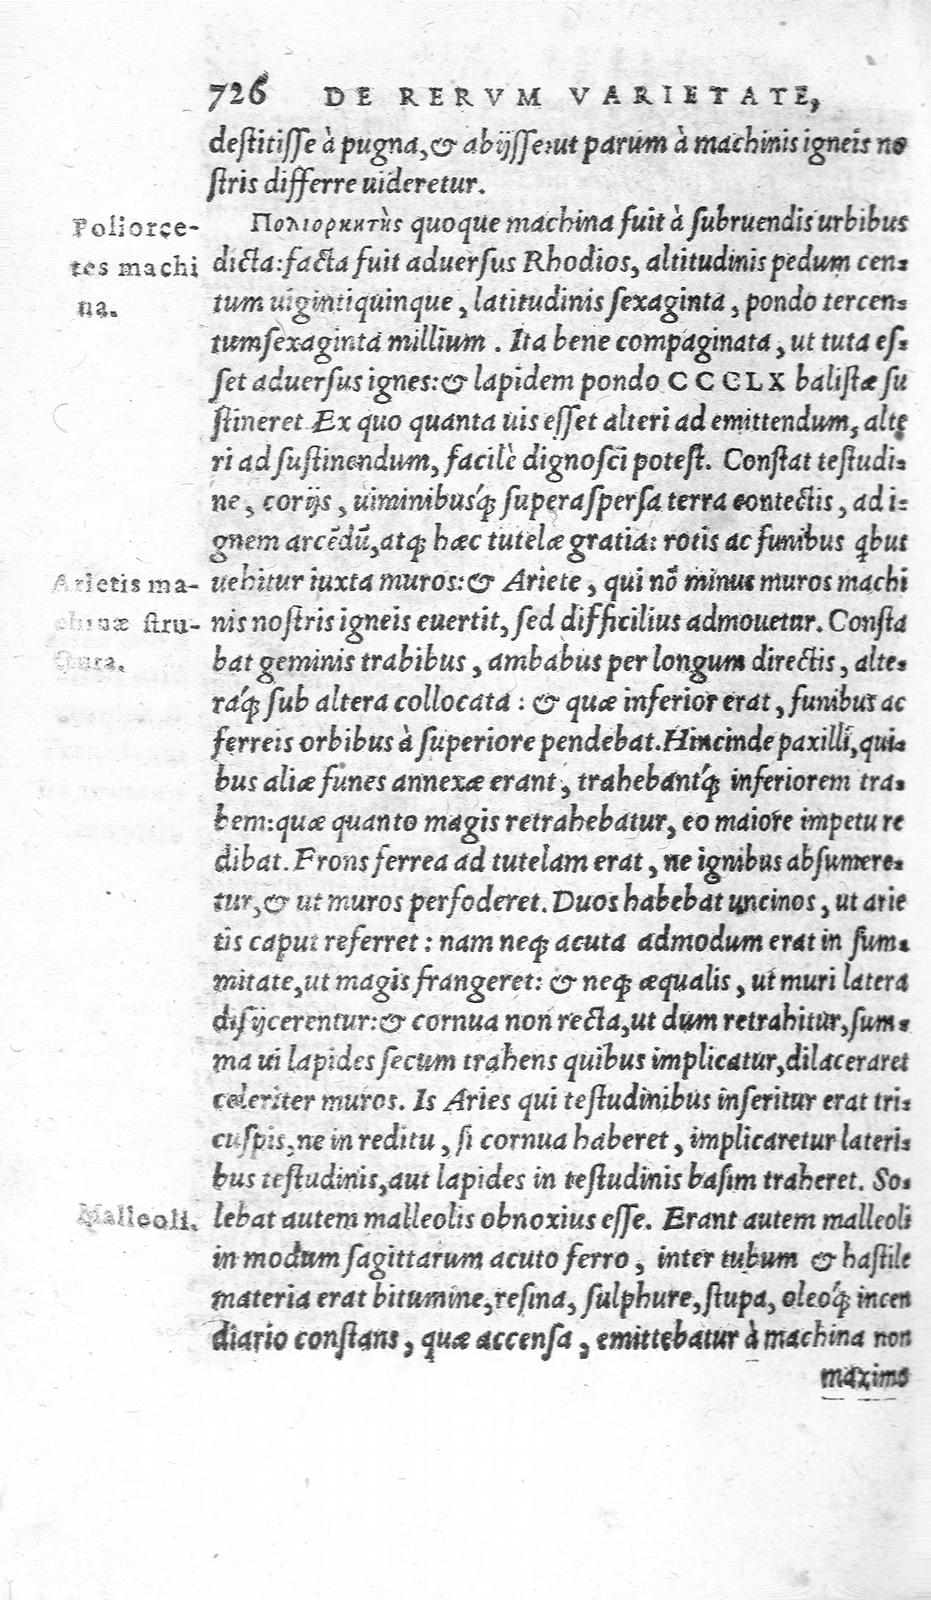 726 DE RERVM VARIETATE,
destitisse à pugna, & abijsse:ut parum à machinis igneis no
stris differre uideretur.
Poliorce-
tes machi
na.
Πολιορκητὴς quoque machina fuit à subruendis urbibus
dicta: facta fuit aduersus Rhodios, altitudinis pedum cen-
tum uiginti quinque, latitudinis sexaginta, pondo tercen-
tum sexaginta millium. Ita bene compaginata, ut tuta es-
set aduersus ignes: & lapidem pondo CCCLX balistæ su
stineret Ex quo quanta uis esset alteri ad emittendum, alte
ri ad sustinendum, facilè dignosci potest. Constat testudi-
ne, corijs, uiminibusq́; superaspersa terra contectis, ad i-
gnem arcēdū, atq; hæc tutelæ gratia: rotis ac funibus qbus
Arietis ma-
chinæ stru-
ctura.
uehitur iuxta muros: & Ariete, qui nō minus muros machi
nis nostris igneis euertit, sed difficilius admouetur. Consta
bat geminis trabibus, ambabus per longum directis, alte-
raq́; sub altera collocata: & quæ inferior erat, funibus ac
ferreis orbibus à superiore pendebat. Hincinde paxilli, qui-
bus aliæ funes annexæ erant, trahebantq́; inferiorem tra-
bem: quæ quanto magis retrahebatur, eo maiore impetu re
dibat. Frons ferrea ad tutelam erat, ne ignibus absumere-
tur, & ut muros perfoderet. Duos habebat uncinos, ut arie
tis caput referret: nam neq; acuta admodum erat in sum-
mitate, ut magis frangeret: & neq; æqualis, ut muri latera
disijcerentur: & cornua non recta, ut dum retrahitur, sum-
ma ui lapides secum trahens quibus implicatur, dilaceraret
celeriter muros. Is Aries qui testudinibus inseritur erat tri-
cuspis, ne in reditu, si cornua haberet, implicaretur lateri-
bus testudinis, aut lapides in testudinis basim traheret. So-
Malleoli.
lebat autem malleolis obnoxius esse. Erant autem malleoli
in modum sagittarum acuto ferro, inter tubum & hastile
materia erat bitumine, resina, sulphure, stupa, oleoq́; incen
diario constans, quæ accensa, emittebatur à machina non
maximo